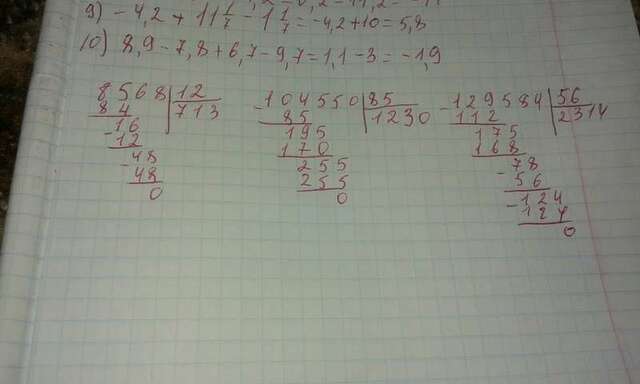 9) -4,2 + 11 1/7 - 1 1/7 = -4,2+10 = 5,8
10) 8,9 - 7,8 + 6,7 - 9,7 = 1,1 - 3 = -1,9
8568 | 12
84 713
16
-12
-48
48
0
-104550 | 85
85 1230
195
170
255
255
0
-129584 | 56
112 2314
175
168
78
-56
-124
124
0